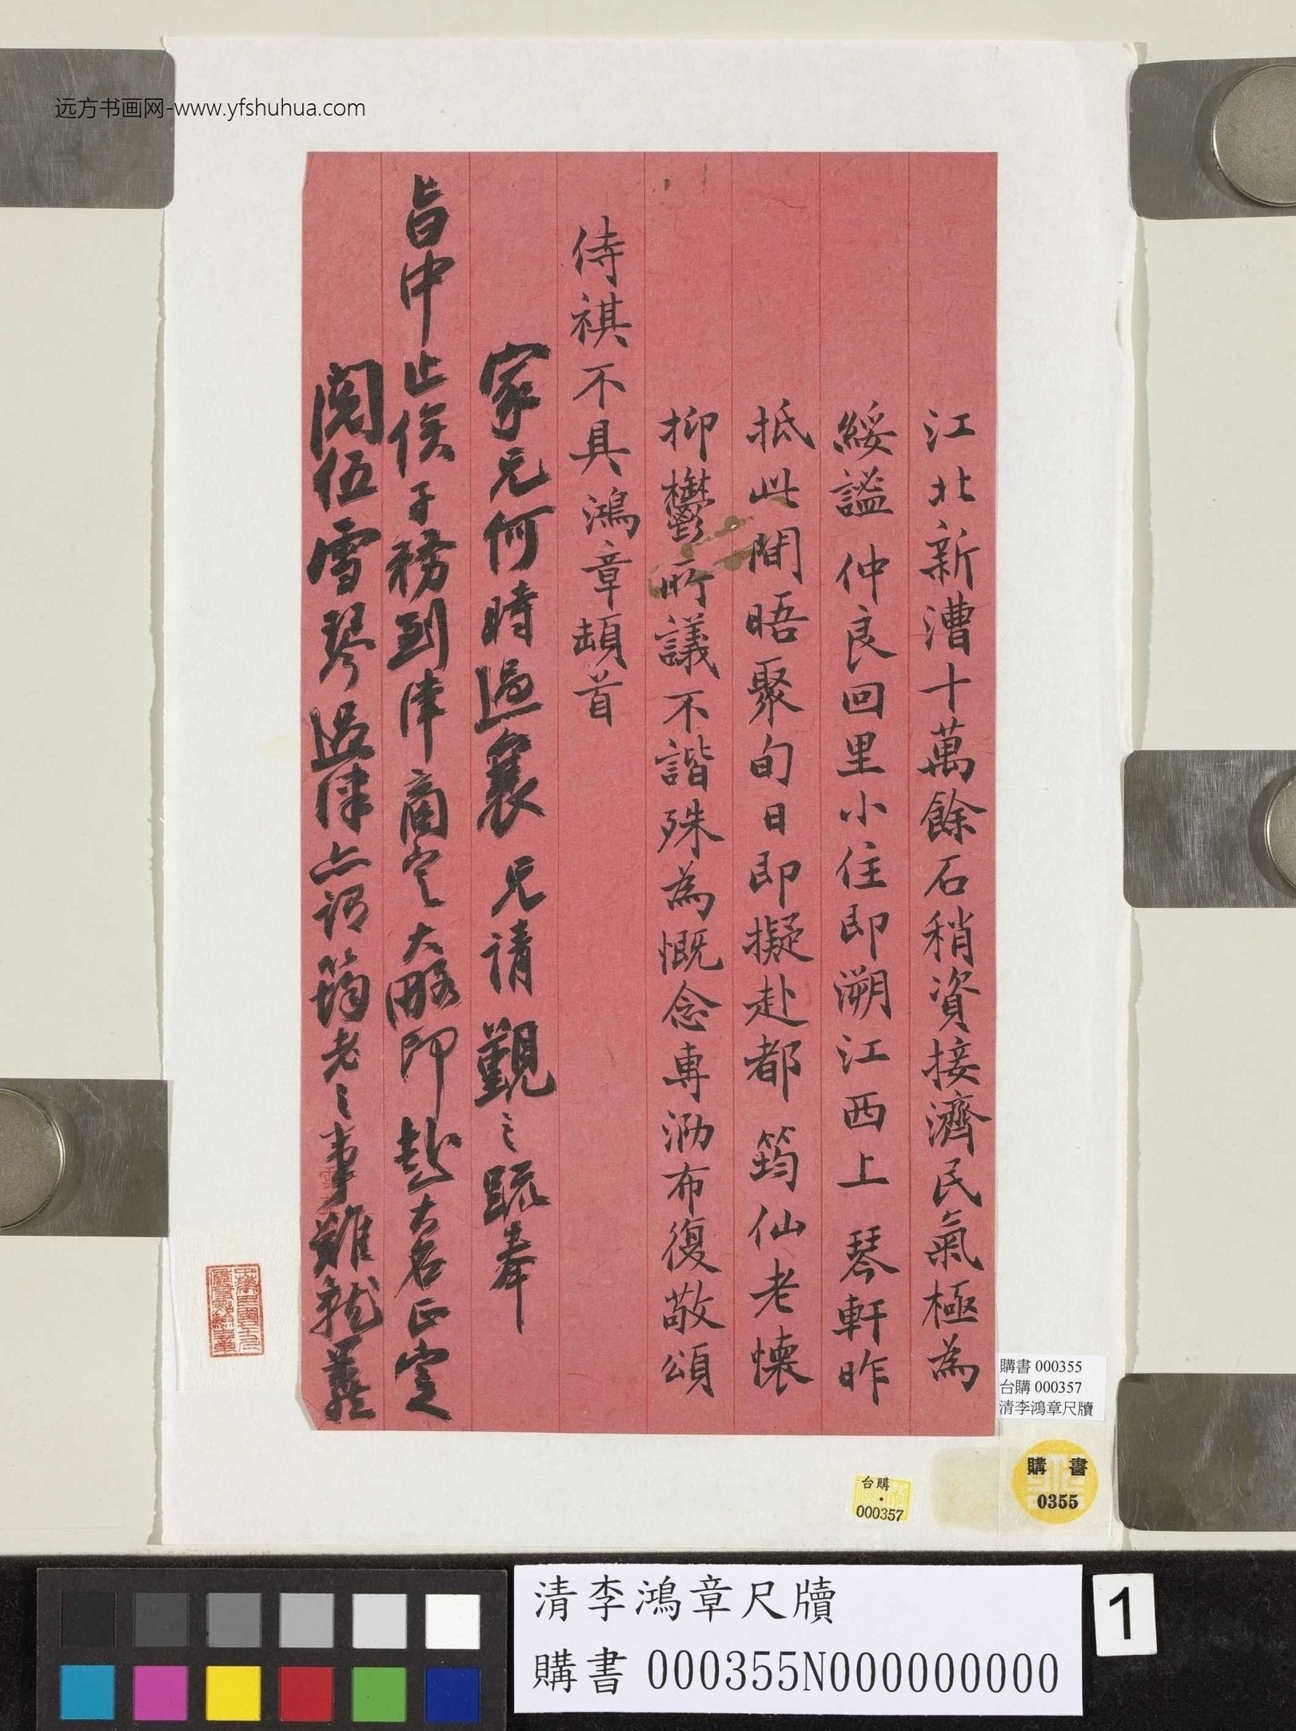 远方书画网-www.yfshuhua.com
江北新漕十萬餘石稍資接濟民氣極為
綏謐 仲良回里小住即溯江西上 琴軒昨
抵此間晤聚旬日即擬赴都 筠仙老懷
抑鬱所議不諧殊為慨念專泐布復敬頌
侍祺不具鴻章頓首
家兄何時過襄 兄請覲之疏奉
旨中止俟子務到津商定大略即赴大名正定
閱伍雪琴過津亦謂筠老之事難就羣
購書 000355
台購 000357
清李鴻章尺牘
購書
0355
台購
000357
清李鴻章尺牘
購書 000355N000000000
1